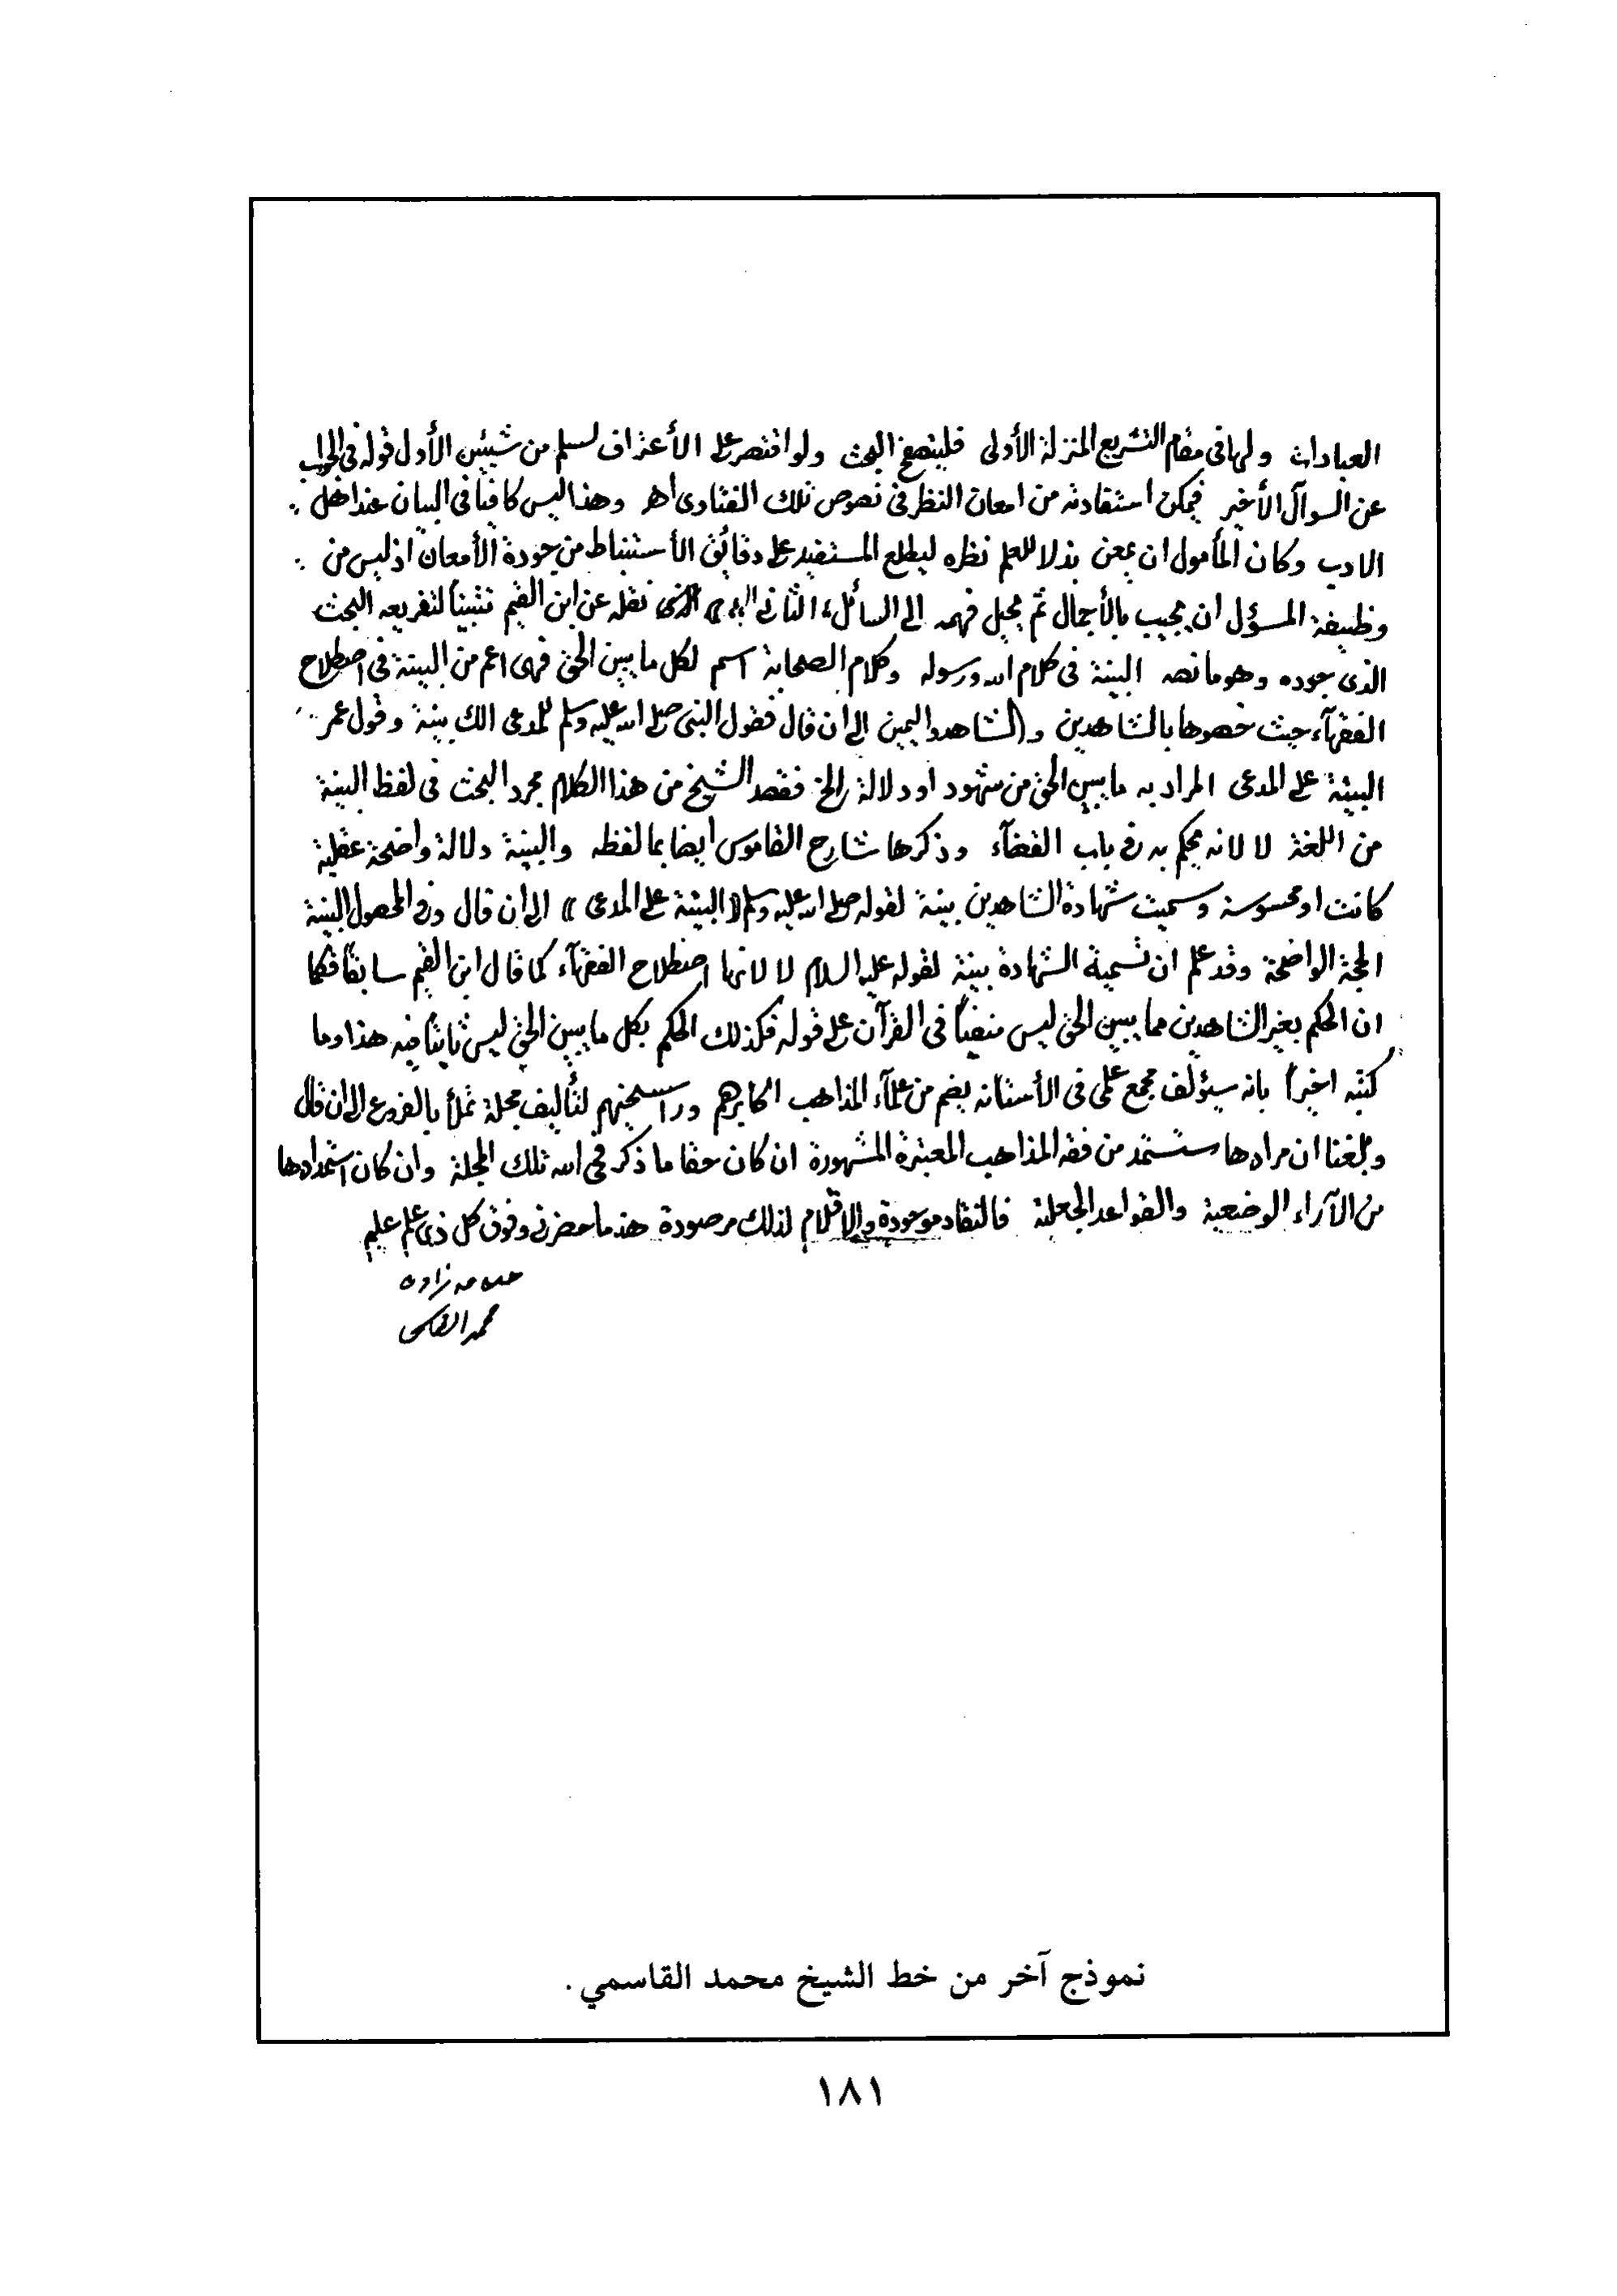 العبادات ولها فى مقام التشريع المنزلة الأولى فليتصفح البحث ولو اقتصر على الأعتراف لسلم من شيئين الأول قوله فى الجواب
عن السوآل الأخير فيمكن استفادته من امعان النظر فى نصوص تلك الفتاوى اهـ وهذا ليس كافيا فى البيان عند اهل
الادب وكان المأمول ان يمعن بذلا للعلم نظره ليطلع المستفيد على دقائق الأستنباط من جودة الأمعان اذ ليس من
وظيفة المسؤل ان يجيب بالأجمال ثم يحيل فهمه الى السائل، الثانى الذى نقله عن ابن القيم تثبيتاً لتفريعه البحث
الذى جوده وهو ما نصه البينة فى كلام الله ورسوله وكلام الصحابة اسم لكل ما يبين الحق فهى اعم من البينة فى اصطلاح
الفقهآء حيث خصوها بالشاهدين و(الشاهد واليمين الى ان قال فقول النبى صلى الله عليه وسلم للمدعى الك بينة وقول عمر
البينة على المدعى المراد به ما يبين الحق من شهود او دلالة الخ فقصد الشيخ من هذا الكلام مجرد البحث فى لفظ البينة
من اللغة لا لانه يحكم به فى باب القضآء وذكرها شارح القاموس ايضا بما لفظه والبينة دلالة واضحة عقلية
كانت او محسوسة وسميت شهادة الشاهدين بينة لقوله صلى الله عليه وسلم ((البينة على المدعى)) الى ان قال وفى المحصول البينة
الحجة الواضحة وقد علم ان تسمية الشهادة بينة لقوله عليه السلام لا لانها اصطلاح الفقهآء كما قال ابن القيم سابقاً فكما
ان الحكم بغير الشاهدين مما يبين الحق ليس منفياً فى القرآن على قوله فكذلك الحكم بكل ما يبين الحق ليس ثابتاً فيه هذا وما
كتبه اخيراً بانه سيؤلف مجمع علمى فى الأستانه يضم من علمآء المذاهب اكابرهم وراسخيهم لتأليف مجلة تملأ بالفروع الى ان قال
وبلغنا ان مرادها ستستمد من فقه المذاهب المعتبرة المشهورة ان كان حقا ما ذكر فحى الله تلك المجلة وان كان استمدادها
من الآراء الوضعية والقواعد الجعلية فالنقاد موجودة والاقلام لذلك مرصودة هذه ما حضرنى وفوق كل ذى علم عليم
محمد القاسمى
نموذج آخر من خط الشيخ محمد القاسمي .
١٨١